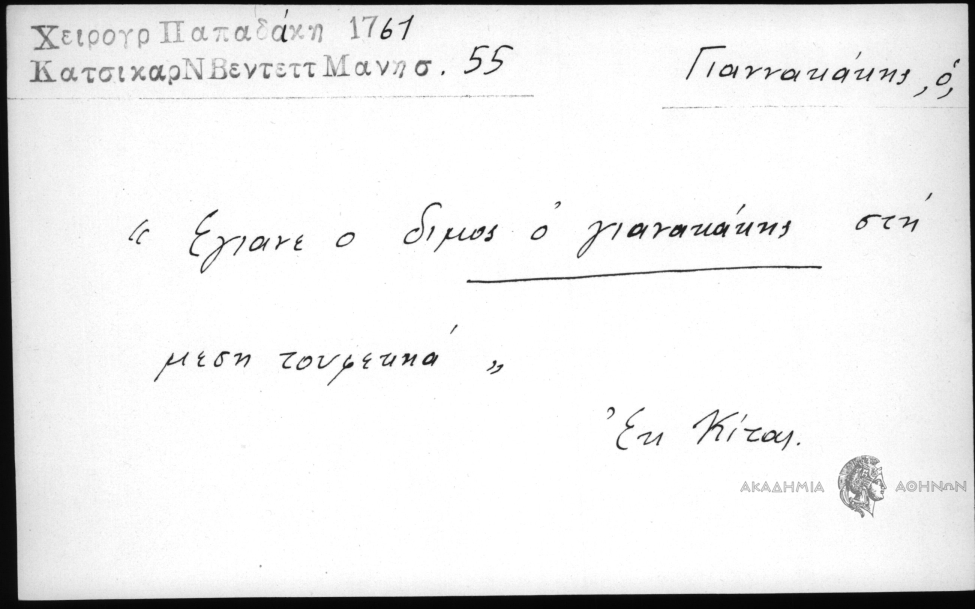 Χειρογρ Παπαδάκη 1761
ΚατσικαρΝΒεντεττΜανησ. 55
Γιαννακάκης, ὁ,
“ ξγιανε ο διμος ὁ γιανακάκης στή
μεση τουφεκηά „
Ἐκ Κίτας.
ΑΚΑΔΗΜΙΑ ΑΘΗΝΩΝ